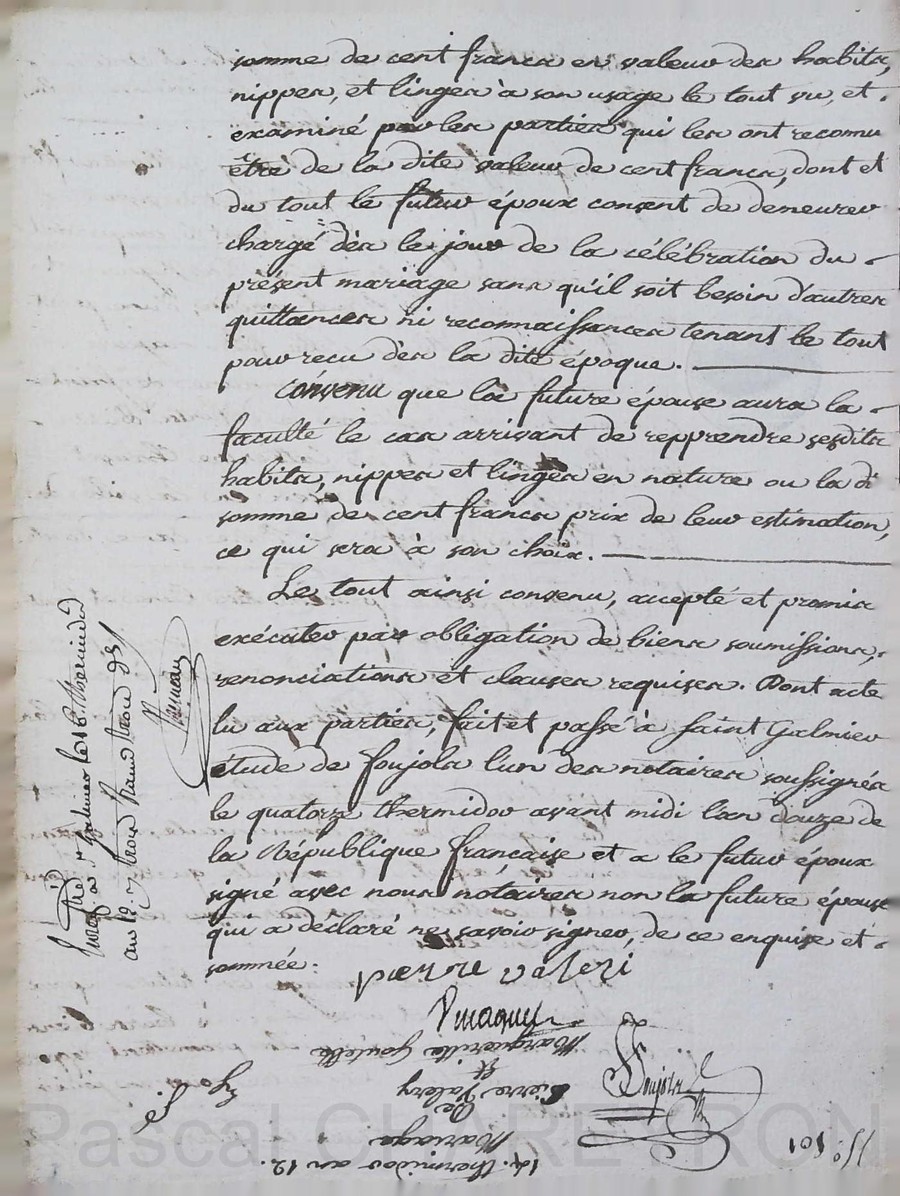 somme de cent francs en valeur des habits,
nippes, et linges à son usage le tout vu, et
examiné par les parties qui les ont reconnu
être de la dite valeur de cent francs, dont et
du tout le futur époux consent de demeurer
chargé dès le jour de la célébration du
présent mariage sans qu'il soit besoin d'autres
quittances ni reconnaissances tenant le tout
pour recu dès la dite époque.
Convenu que la future épouse aura la
faculté le cas arrivant de repprendre sesdits
habits, nippes et linges en nature ou la d
somme de cent francs prix de leur estimation,
ce qui sera à son choix.
Le tout ainsi convenu, accepté et promis
exécuter par obligation de biens soumissions,
renonciations et clauses requises. Dont acte
lu aux parties, fait et passé à Saint Galmier
étude de Foujols l'un des notaires soussignés
le quatorze thermidor avant midi l'an douze de
la République française et a le futur époux
signé avec nous notaires non la future épouse
qui a déclaré ne savoir signer, de ce enquise et
sommée.
pierre valeri
Foujols
à St Galmier le 16 thermidor
an 12
14. thermidor an 12.
Mariage
De
Pierre Valery
et
Marguerite
101